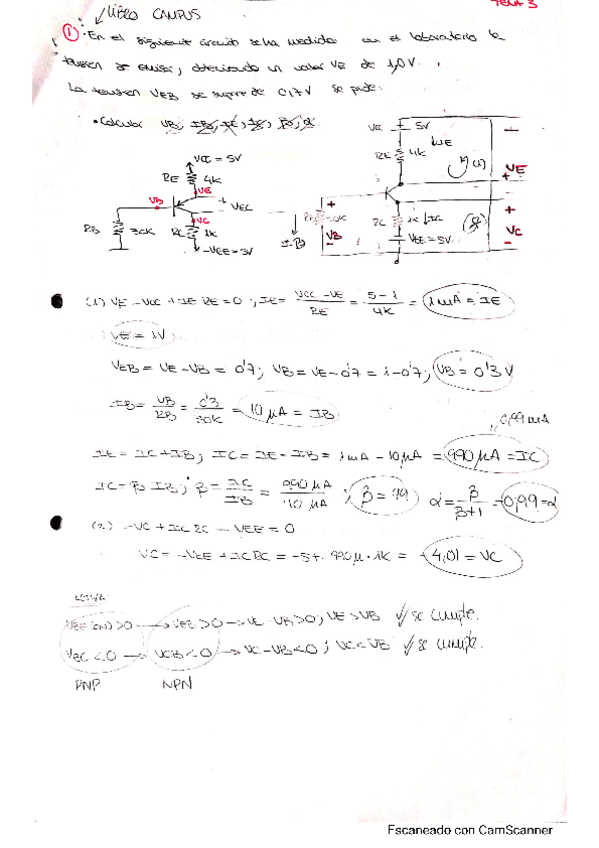 TEMA 3
LIBRO CAMPUS
① En el siguiente circuito se ha medido en el laboratorio la
tension de emisor, obteniendo un valor VE de 1,0V.
La tension VEB se supone de 0,7V se pide:
• Calcular VB, IB, IE, IC, β, α
VCC = 5V
RE 4K
VE
VEC
VB
VC
RB 30K
RC 1K
-VEE = 5V
VCC 5V
RE 4K
IE
(1)
VE
RC 1K IC
VB
IB
VEE = 5V
VC
(1) VE - VCC + IE RE = 0 ; IE = VCC - VE / RE = 5 - 1 / 4K = 1 mA = IE
VE = 1V
VEB = VE - VB = 0'7 ; VB = VE - 0'7 = 1 - 0'7 ; VB = 0'3 V
IB = VB / RB = 0'3 / 30K = 10 μA = IB
0,99 mA
IE = IC + IB ; IC = IE - IB = 1 mA - 10 μA = 990 μA = IC
IC = β IB ; β = IC / IB = 990 μA / 10 μA ; β = 99 α = β / β+1 = 0,99 = α
(2) -VC + IC RC - VEE = 0
VC = -VEE + IC RC = -5 + 990 μ · 1K = -4,01 = VC
ACTIVA
VBE (ON) > 0 → VEB > 0 → VE - VB > 0 ; VE > VB ✓ se cumple.
VBC < 0 → VCB < 0 → VC - VB < 0 ; VC < VB ✓ se cumple.
PNP NPN
Escaneado con CamScanner